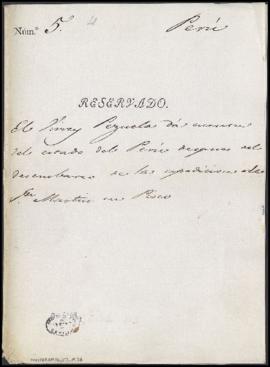 Núm.º 5. 4 Perú
RESERVADO.
El Virrey Pezuela dá cuenta
del estado del Perú despues del
desembarco de la espedicion de
Sn Martin en Pisco